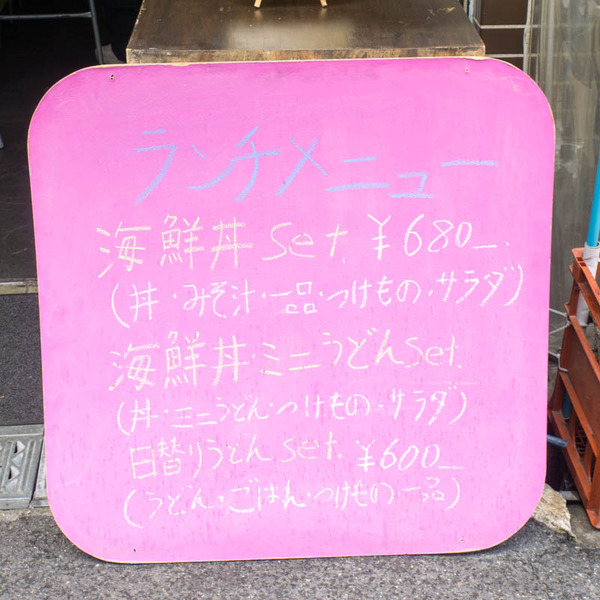 ランチメニュー
海鮮丼 set. ¥680ー.
(丼・みそ汁・一品・つけもの・サラダ)
海鮮丼・ミニうどんset.
(丼・ミニうどん・つけもの・サラダ)
日替りうどん set. ¥600ー
(うどん・ごはん・つけもの・一品)